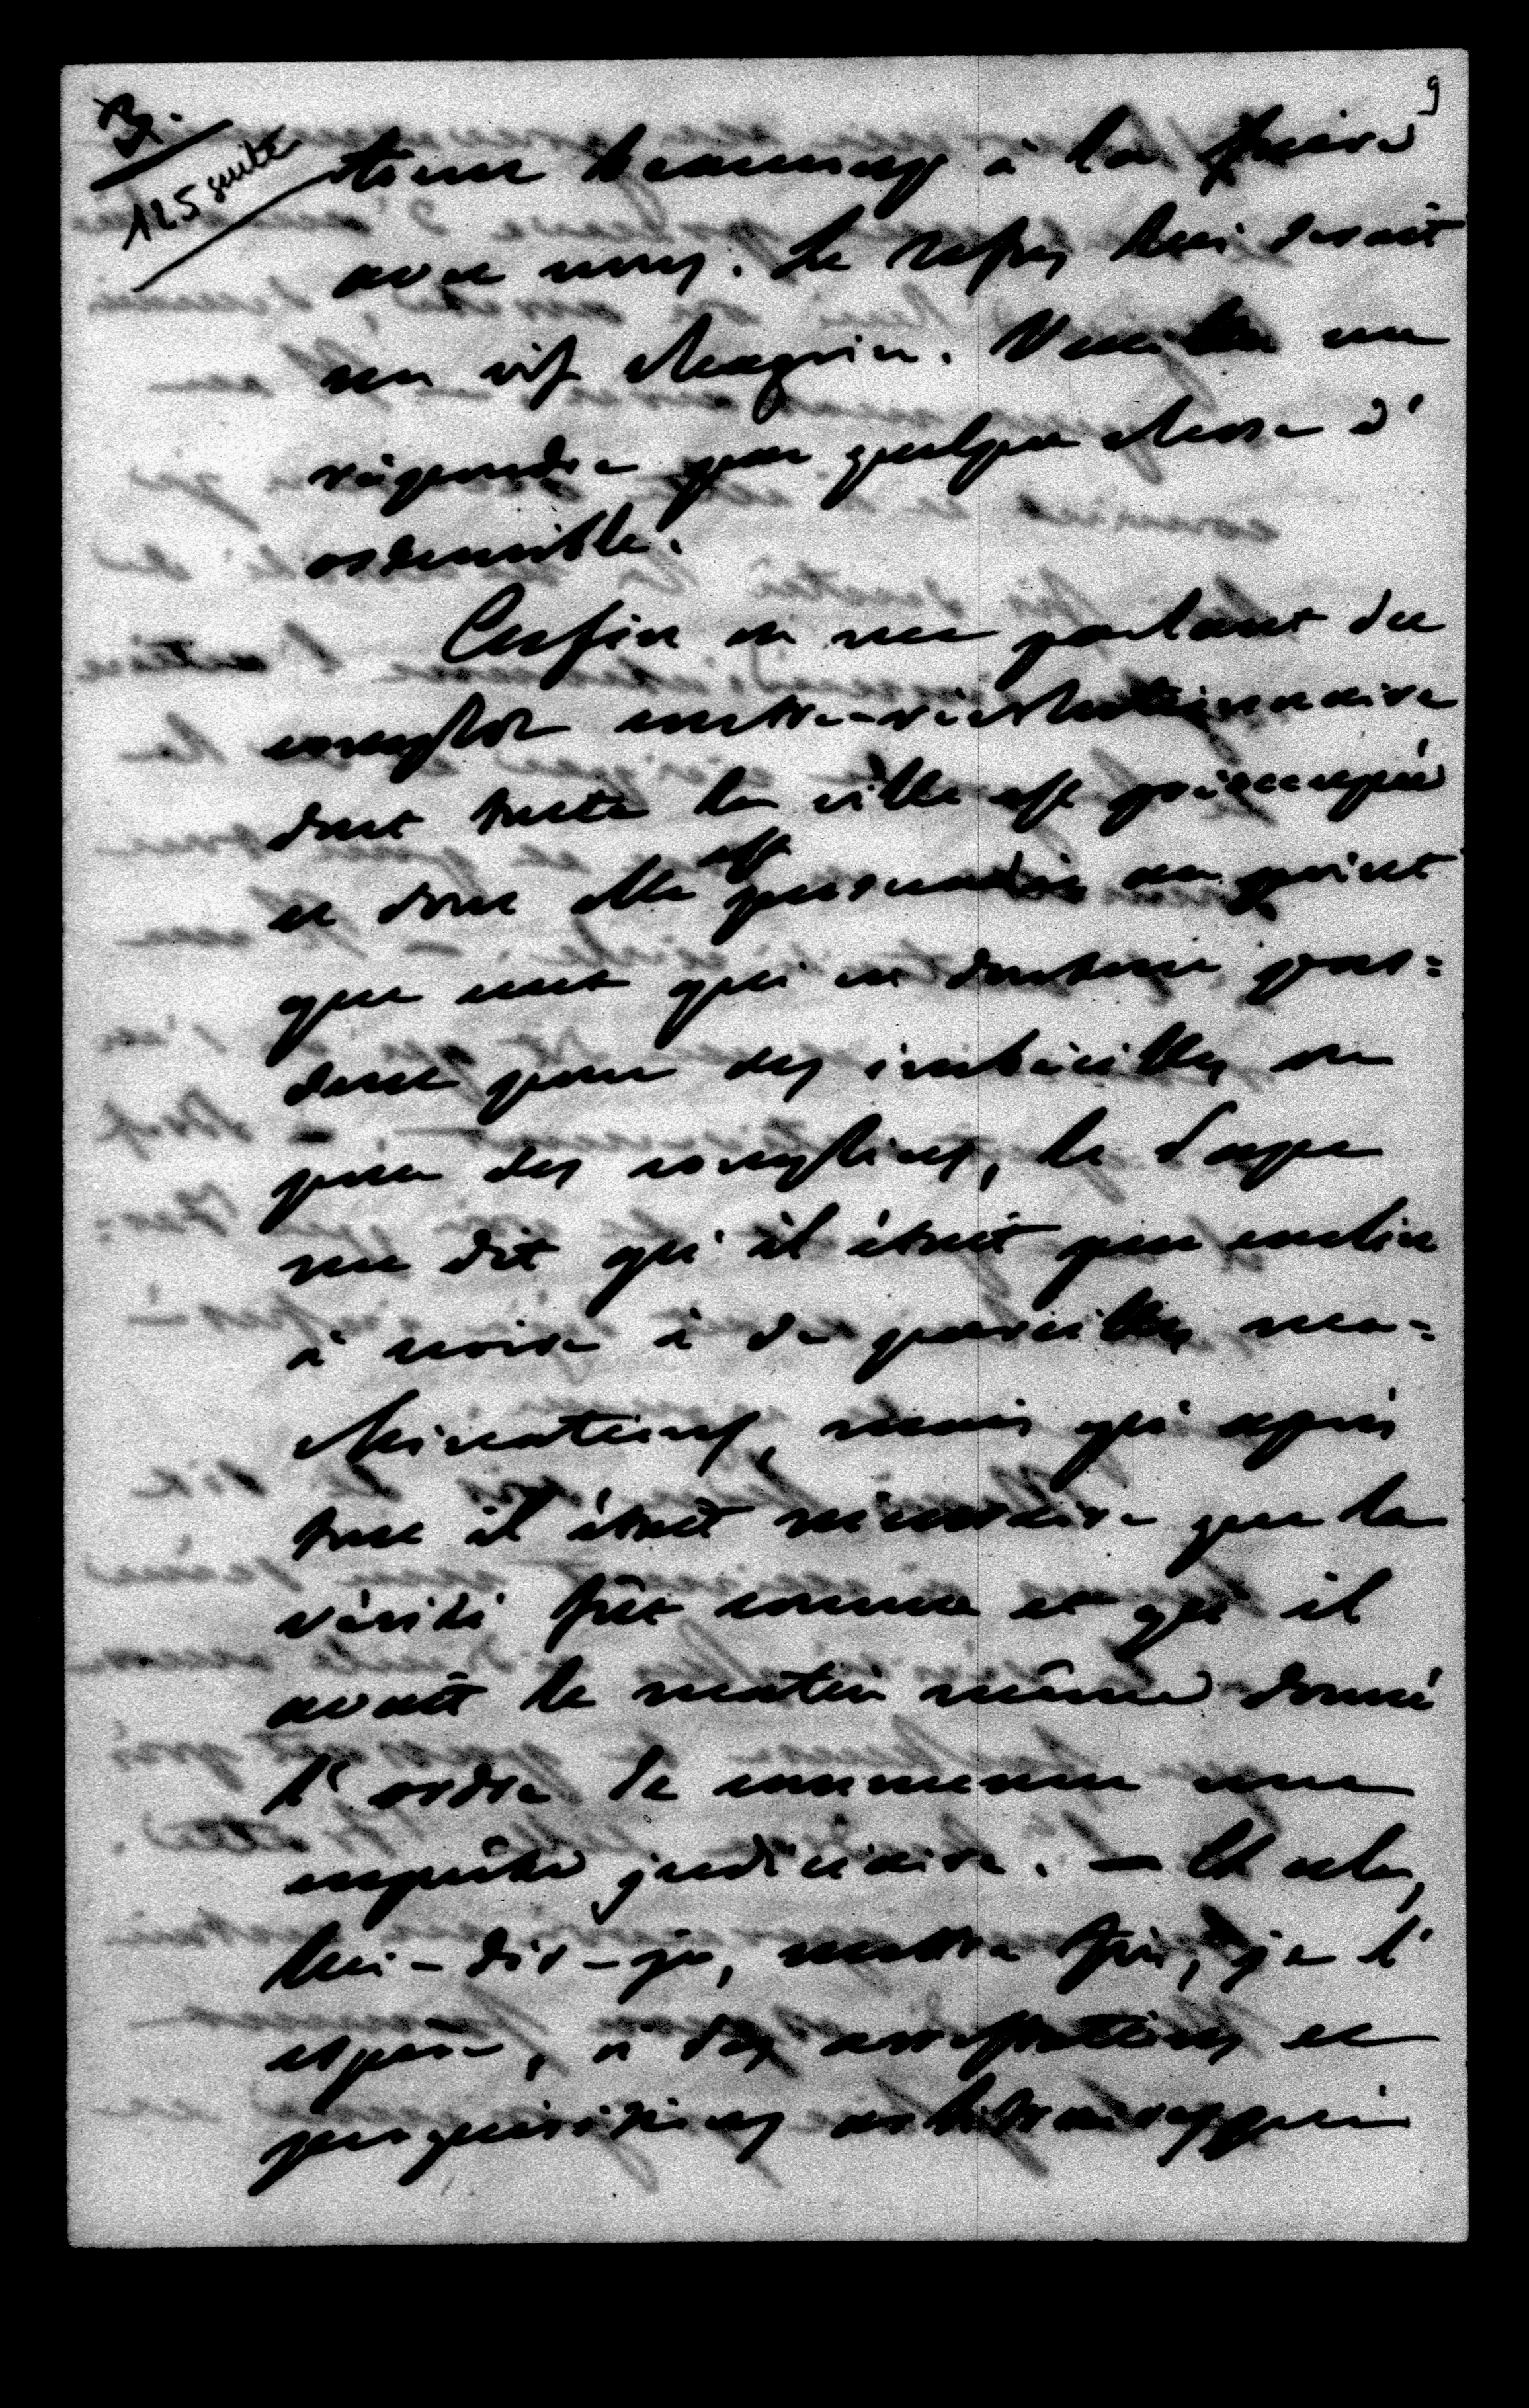 9
3.
125 suite
tienne beaucoup à la faire
avec nous. Le refus lui serait
un vif chagrin. Veuillez me
répondre par quelque chose d'
ostensible.
Enfin en me parlant du
complot contre-révolutionnaire
dont toute la ville est préoccupée
et dont elle est persuadée au point
que ceux qui en doutent pas=
sent pour des imbéciles ou
pour des complices, le Pape
me dit qu'il était peu enclin
à croire à de pareilles ma=
chinations, mais qu'après
tout il était nécessaire que la
vérité fût connue et qu'il
avait le matin même donné
l'ordre de commencer une
enquête judiciaire. — Et cela,
lui-dis-je, mettra fin, je l'
espère, à des arrestations et
perquisitions arbitraires qui